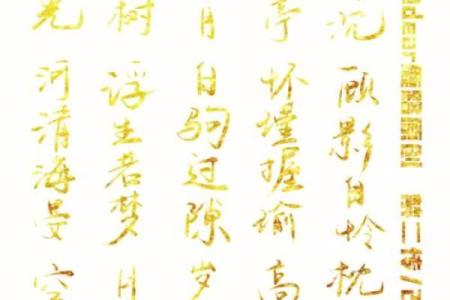 顾影自怜 枕
亭 怀瑾握瑜 高
白驹过隙 岁
树 浮生若梦 月
光 河清海晏 空